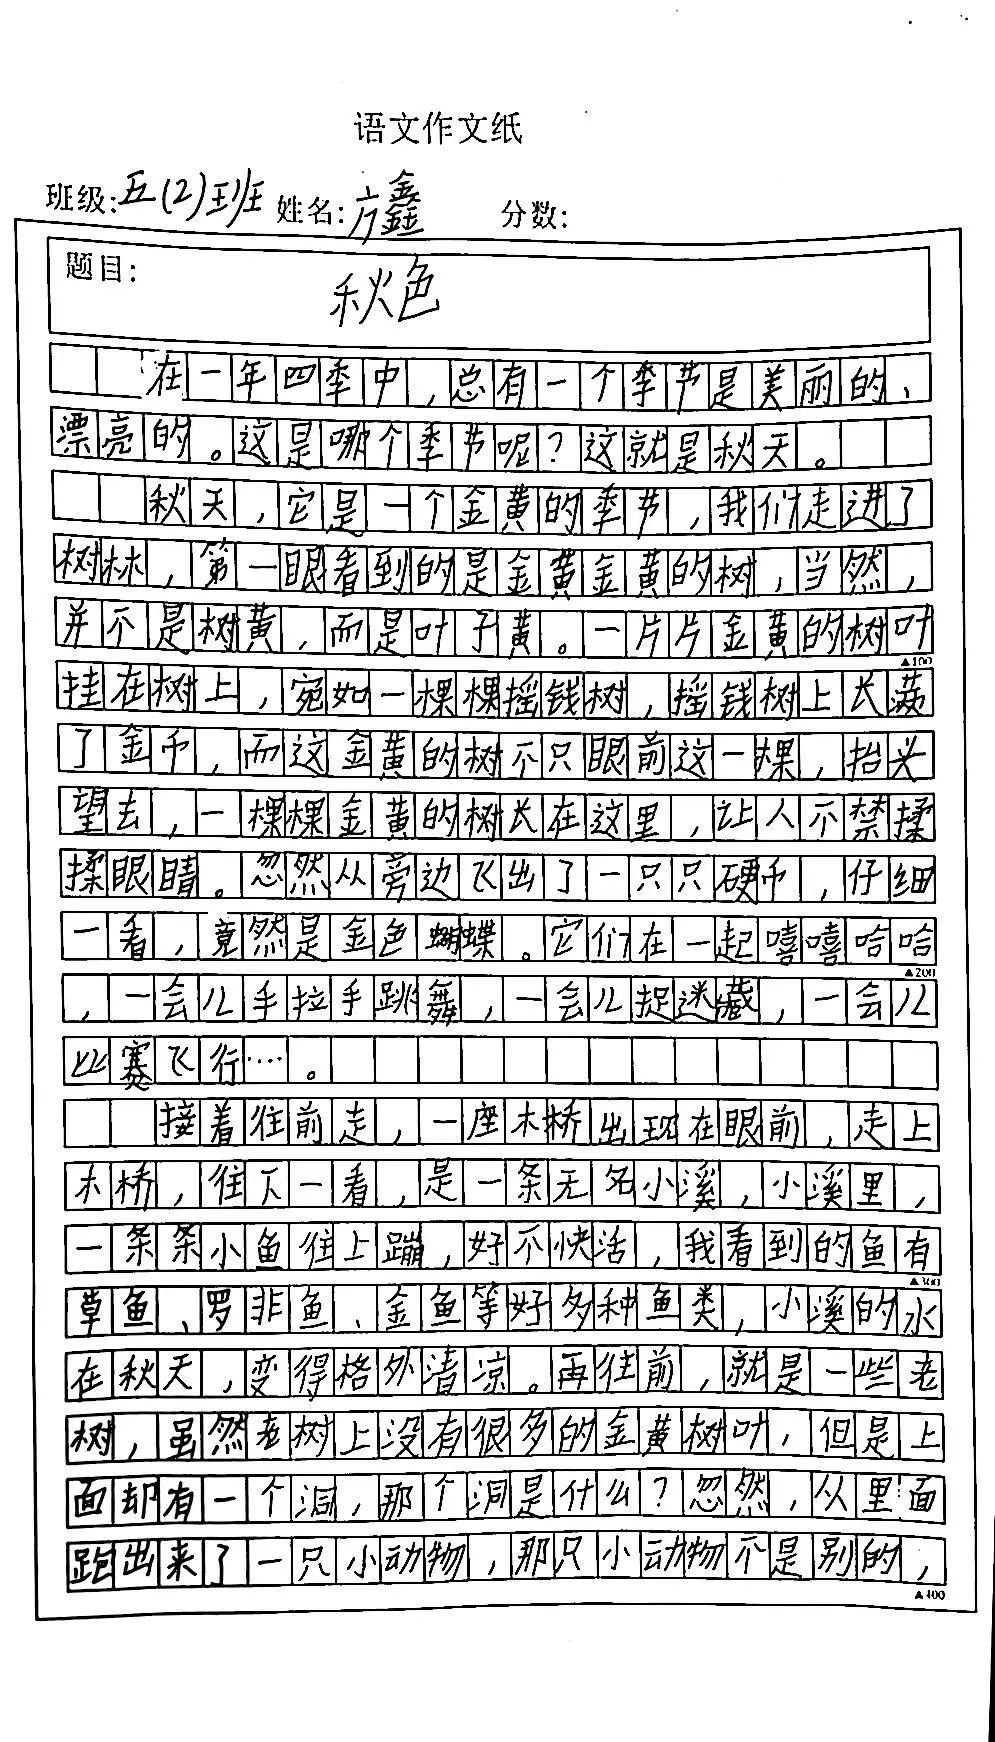 语文作文纸
班级:五(2)班 姓名:方鑫 分数:
题目: 秋色
在一年四季中,总有一个季节是美丽的、
漂亮的。这是哪个季节呢?这就是秋天。
秋天,它是一个金黄的季节,我们走进了
树林,第一眼看到的是金黄金黄的树,当然,
并不是树黄,而是叶子黄。一片片金黄的树叶
▲100
挂在树上,宛如一棵棵摇钱树,摇钱树上长满
了金币,而这金黄的树不只眼前这一棵,抬头
望去,一棵棵金黄的树长在这里,让人不禁揉
揉眼睛。忽然从旁边飞出了一只只硬币,仔细
一看,竟然是金色蝴蝶。它们在一起嘻嘻哈哈
▲200
,一会儿手拉手跳舞,一会儿捉迷藏,一会儿
比赛飞行…。
接着往前走,一座木桥出现在眼前,走上
木桥,往下一看,是一条无名小溪,小溪里,
一条条小鱼往上蹦,好不快活,我看到的鱼有
▲300
草鱼、罗非鱼、金鱼等好多种鱼类,小溪的水
在秋天,变得格外清凉。再往前,就是一些老
树,虽然老树上没有很多的金黄树叶,但是上
面却有一个洞,那个洞是什么?忽然,从里面
跑出来了一只小动物,那只小动物不是别的,
▲400